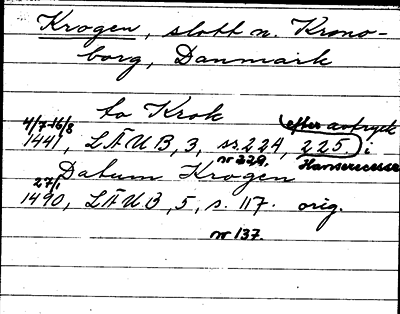 Krogen, slott n. Krono-
borg, Danmark
to Krok efter avtryck
4/7-16/8
1441, LÄUB, 3, ss. 224, 225 i
nr 329. Hanserecesse
Datum Krogen
27/1
1490, LÄUB, 5, s. 117. orig.
nr 137.